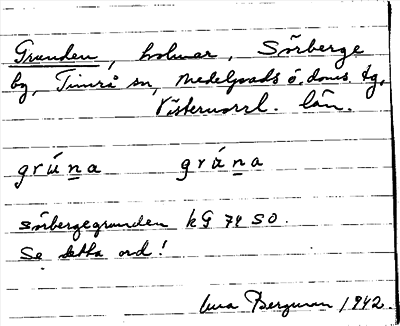 Grunden, holmar, Sörberge
by, Timrå sn, Medelpads ö. doms. tg,
Västernorrl. län.
grúna grána
Sörbergegrunden kG 74 SO.
Se detta ord!
Bergman 1942.